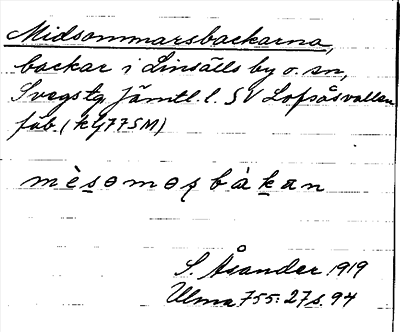 Midsommarsbackarna,
backar i Linsälls by o. sn,
Svegs tg, Jämtl. l. SV Lofsåsvallen
fäb. (klj 77 SM)
mèsomosbàkan
S. Åsander 1919
Ulma 755: 27 s. 94